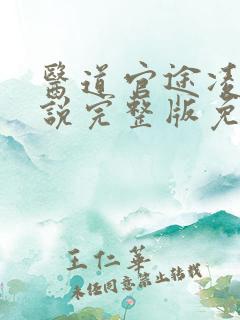 醫道官途凌
說完整版免
王仁華
未經同意禁止轉載